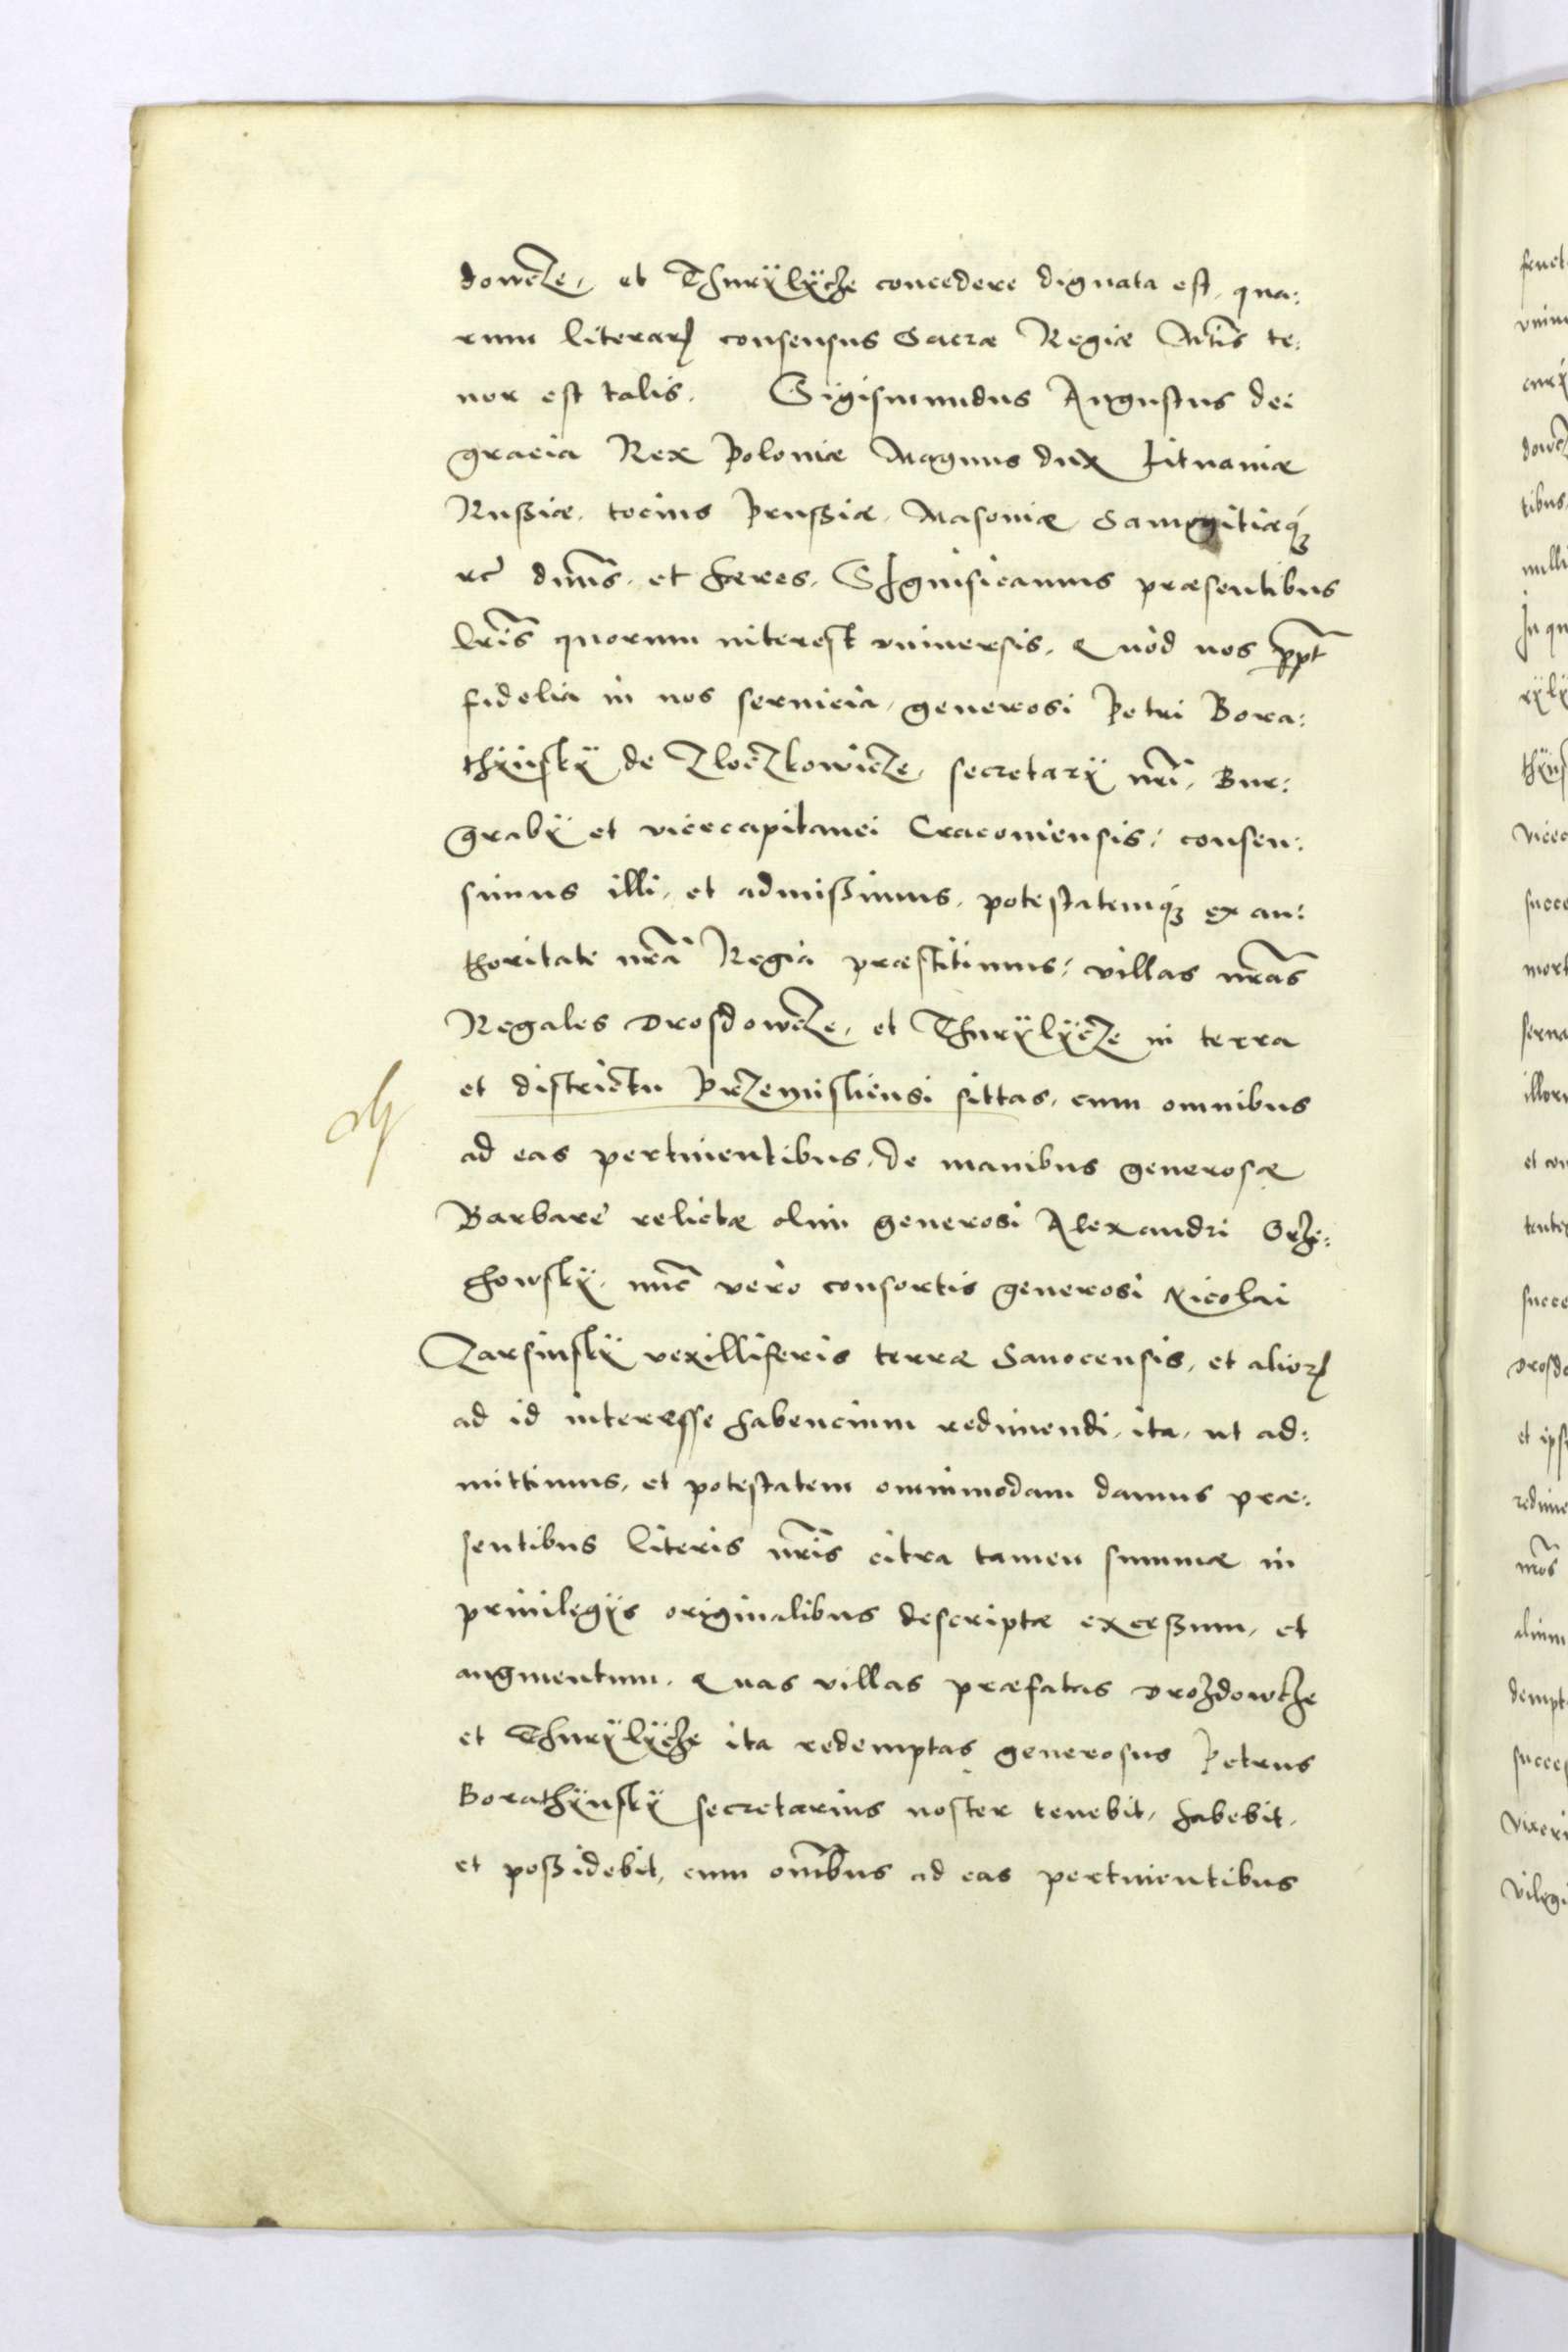 dowcze, et Thurÿlÿcze concedere dignata est, qua:
rum literarꝝ consensus Sacræ Regiæ Mtis te:
nor est talis. Sigismundus Augustus dei
gracia Rex Poloniæ Magnus dux Lituaniæ
Rußiæ, tocius Prußiæ, Masoviæ Samogitiæqꝫ
rc dnns, et heres, SIgnificamus præsentibus
lris quorum interest vniuersis, Quòd nos ppt
fidelia in nos seruicia, generosi Petri Bora:
thÿnskÿ de Zloczkowicze, secretarÿ nri, Bur:
grabÿ et vicecapitanei Cracouiensis: consen:
simus illi, et admißimus, potestatemqꝫ ex au:
thoritate nra Regia præstitimus: villas nras
Regales Drosdowcze, et Thurÿlÿcze in terra
et districtu Przemisliensi sittas, cum omnibus
ad eas pertinentibus, de manibus generosæ
Barbare relictæ olim generosi Alexandri Orze:
howskÿ, nunc vero consortis generosi Nicolai
Zarsinskÿ vexilliferis terræ Sanocensis, et aliorꝝ
ad id interesse habencium redimendi, ita, ut ad:
mittimus, et potestatem omnimodam damus præ:
sentibus literis nris citra tamen summæ in
priuilegÿs originalibus descriptæ exceßum, et
augmentum. Quas villas præfatas Drozdowcze
et Thurÿlÿcze ita redemptas generosus Petrus
Borathÿnskÿ secretarius noster tenebit, habebit,
et poßidebit, cum omibus ad eas pertinentibus